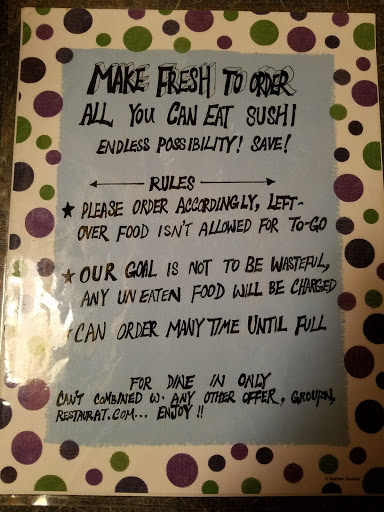 MAKE FRESH TO ORDER
ALL YOU CAN EAT SUSHI
ENDLESS POSSIBILITY! SAVE!
RULES
★ PLEASE ORDER ACCORDINGLY, LEFT-
OVER FOOD ISN'T ALLOWED FOR TO-GO
★ OUR GOAL IS NOT TO BE WASTEFUL,
ANY UNEATEN FOOD WILL BE CHARGED
★ CAN ORDER MANY TIME UNTIL FULL
FOR DINE IN ONLY
CAN'T COMBINED W. ANY OTHER OFFER, GROUPON,
RESTAURAT.COM... ENJOY!!